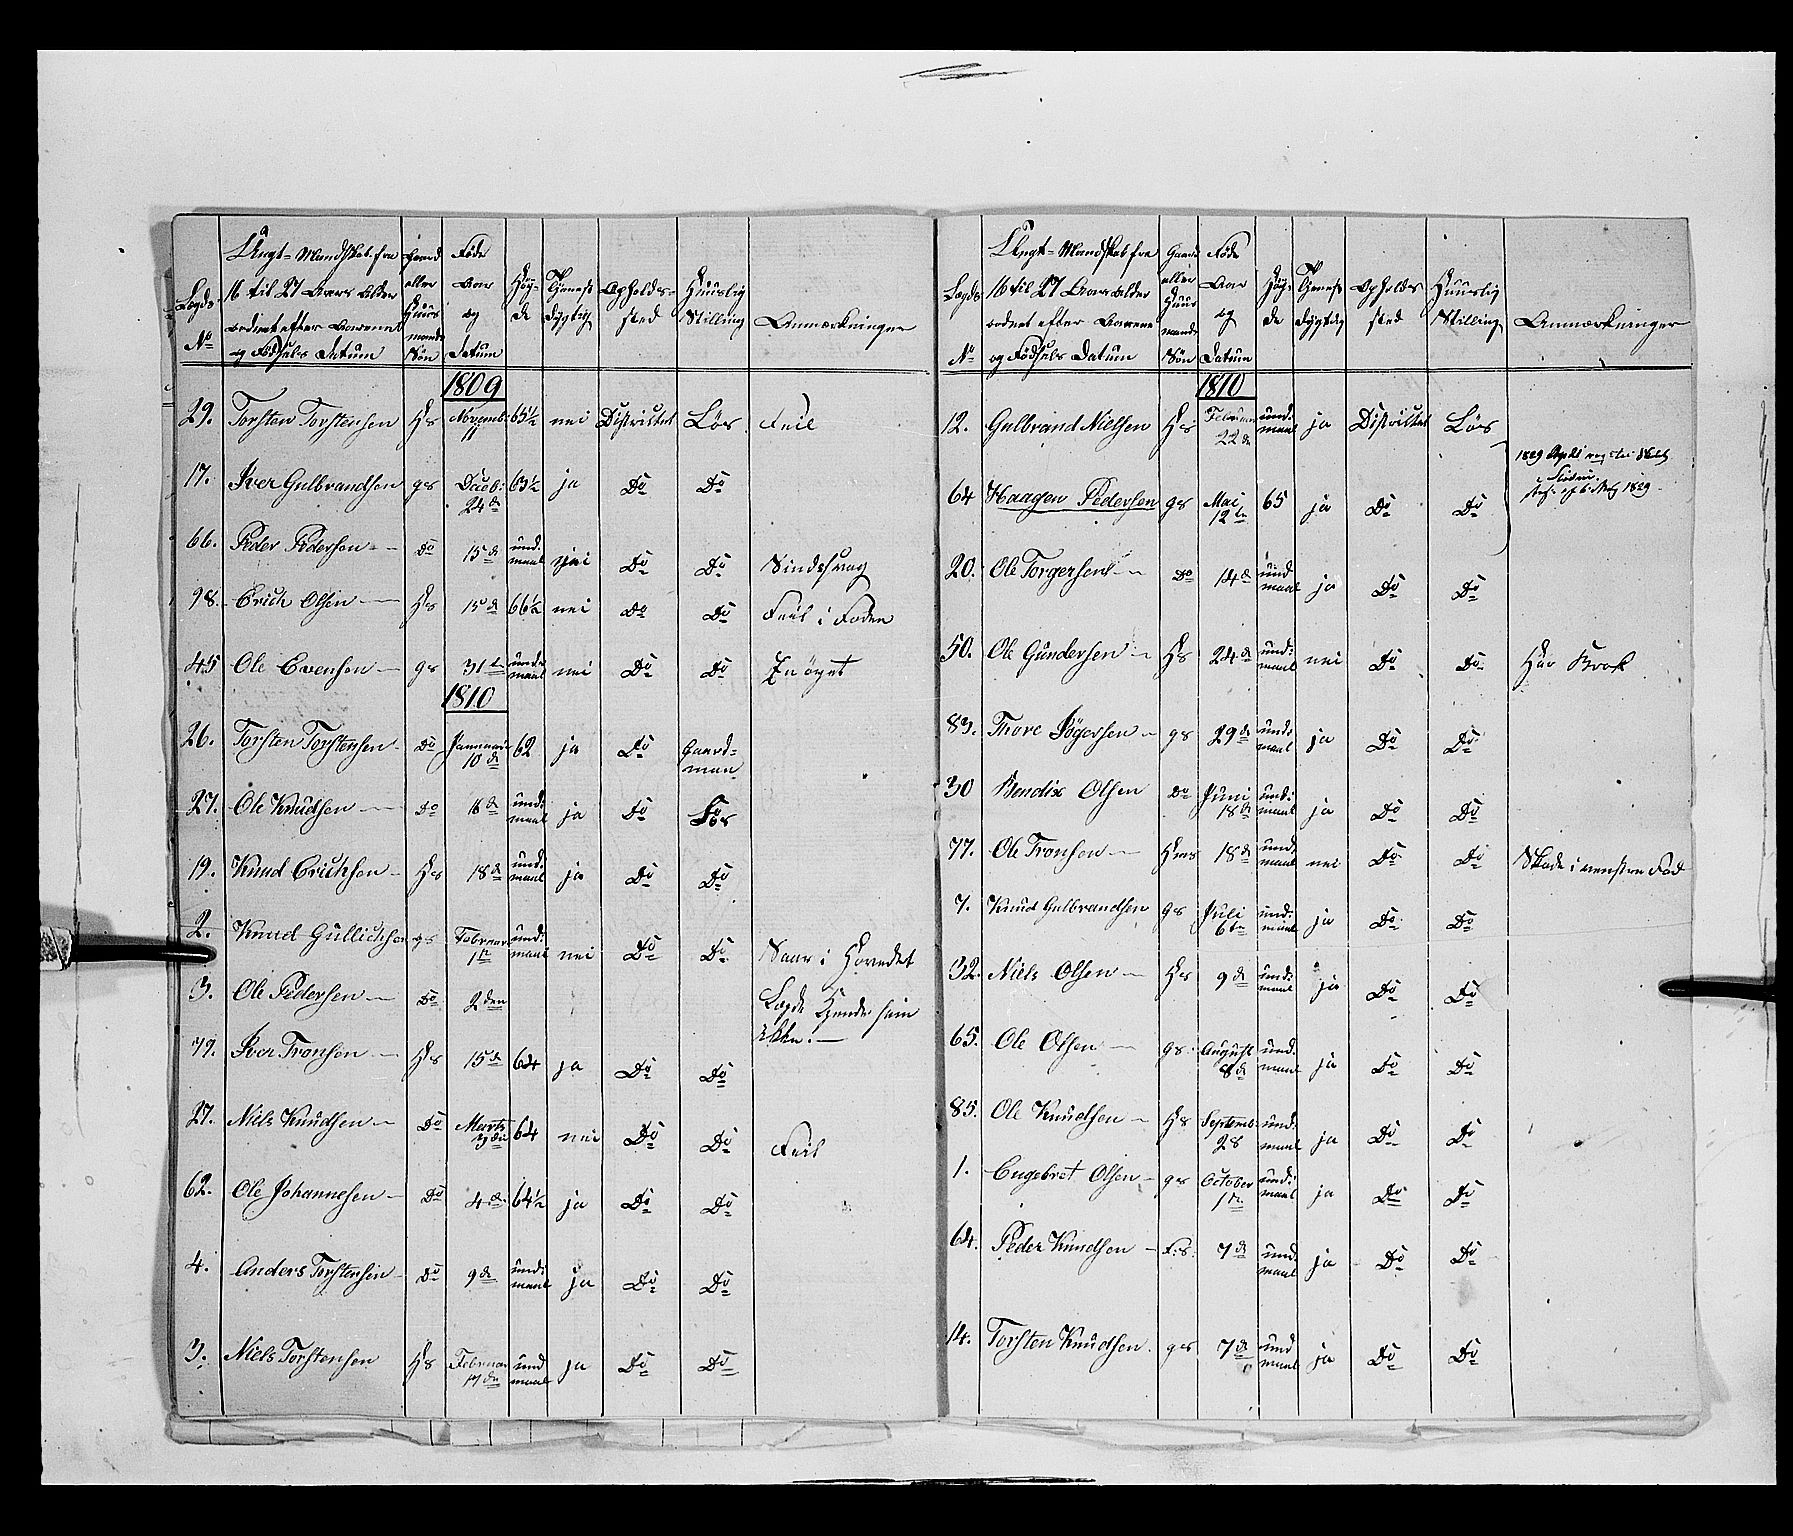 Lægds No | Ungt-Mandskab fra 16 til 27 Aars Alder ordnet efter Aarene og Fødsels Datum | Gaard eller Huusmands Søn | Føde Aar og Datum | Høyde | Tjenestdygtig | Opholdssted | Huuslig Stilling | Anmærkninger
1809
29. Torsten Torstensen Hs Novemb: 11 65½ nei Districtet Løs Feil
17. Iver Gulbrandsen gs Deceb: 24de 63½ ja Do Do
66. Peder Pedersen Do 15de und: maal nei Do Do Sindssvag
98. Erich Olsen Hs 15de 66½ nei Do Do Feil i Foden
45 Ole Evensen gs 31te under maal nei Do Do Enøyet
1810
26. Torsten Torstensen Do Januari 10de 62 ja Do Gaardman
27. Ole Knudsen Do 16de und: maal ja Do Løs
19. Knud Erichsen Hs 18de und: maal ja Do Do
2. Knud Gullichsen gs Februar 1te und: maal nei Do Do Saar i Hovedet
3. Ole Pedersen Do 2den Lægde Kjender ham ikke.
79. Iver Tronsen Hs 15de 64 ja Do Do
27. Niels Knudsen Do Marts 3die 64 nei Do Do Feil
62. Ole Johannesen Do 4de 64½ ja Do Do
4. Anders Torstensen Do 9de und: maal ja Do Do
3. Niels Torstensen Hs Februar 17de und maal ja Do Do
Lægds No | Ungt-Mandskab fra 16 til 27 Aars Alder ordnet efter Aarene og Fødsels Datum | Gaard eller Huusmands Søn | Føde Aar og Datum | Høyde | Tjenestdygtig | Opholdssted | Huuslig Stilling | Anmærkninger
1810
12. Gulbrand Nielsen Hs Februar 22de und: maal ja Districtet Løs
64 Haagen Pedersen gs Mai 12te 65 ja Do Do 1829
1829
20. Ole Torgersen Do 14de und maal ja Do Do
50. Ole Gundersen Hs 24de und: maal nei Do Do Har Brok
83. Trove Bøgersen gs 29de und: maal ja Do Do
30 Bendix Olsen Do Juni 18de und: maal ja Do Do
77. Ole Tronsen Hms 18de und: maal nei Do Do Skade i venstre Fod
7. Knud Gulbrandsen gs Juli 6te und: maal ja Do Do
32. Niels Olsen Hs 9de und: maal ja Do Do
65. Ole Olsen gs. August 8de und: maal ja Do Do
85. Ole Knudsen Hs Septemb: 28 und: maal ja Do Do
1. Engebret Olsen gs October 1te und: maal ja Do Do
64. Peder Knudsen F.s. 7de und maal ja Do Do
14. Torsten Knudsen gs 7de und maal ja Do Do